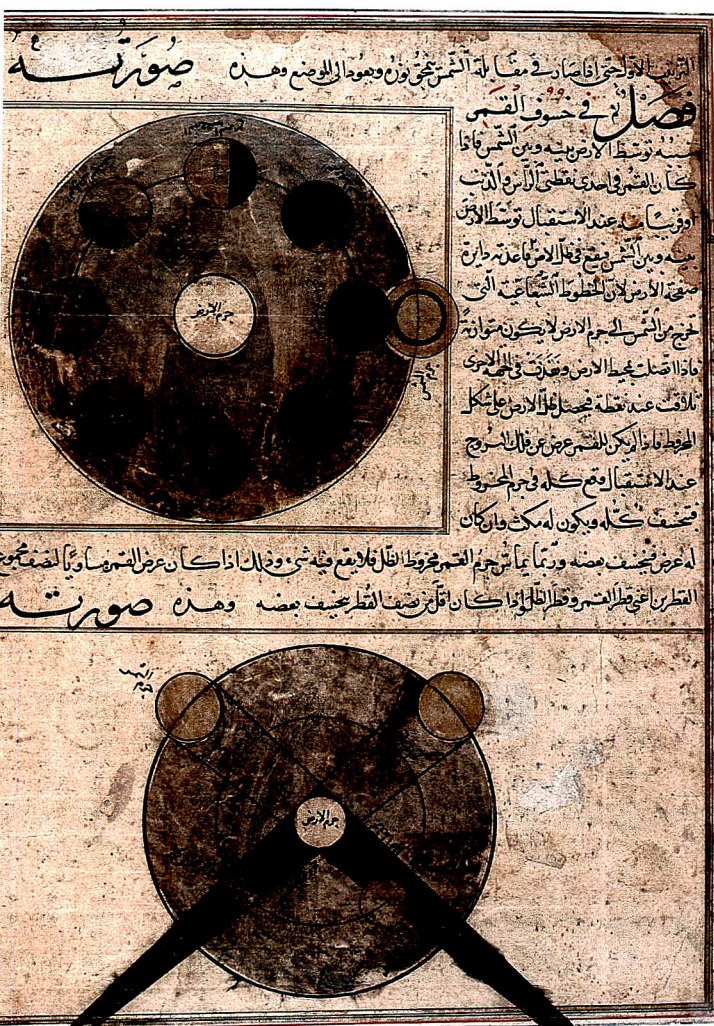 الترتيب الاول حتى اذا صار في مقابلة الشمس يمحق نوره ويعود الى الموضع وهذه صورته
فصل في خسوف القمر
سببه توسط الارض بينه وبين الشمس فاذا
كان القمر في احدى نقطتي الراس والذنب
او قريبا منه عند الاستقبال توسط الارض
بينه وبين الشمس فيقع في ظل الارض
صفحة الارض لان الخطوط الشعاعية التي
تخرج من الشمس الى جرم الارض لا يكون متوازية
فاذا اتصلت بمحيط الارض ونفذت في الجهة الاخرى
تلاقت عند نقطة فيحصل ظل الارض على شكل
المخروط فاذا لم يكن للقمر عرض عن فلك البروج
عند الاستقبال وقع كله في جرم المخروط
فيخسف كله ويكون له مكث وان كان
له عرض فيخسف بعضه وربما يماس جرم القمر مخروط الظل فلا يقع فيه شيء وذلك اذا كان عرض القمر مساويا لنصف مجموع
القطرين اعني قطر القمر وقطر الظل واذا كان اقل من نصف القطر يخسف بعضه وهذه صورته
جرم الارض
جرم الشمس
جرم الشمس
جرم الارض